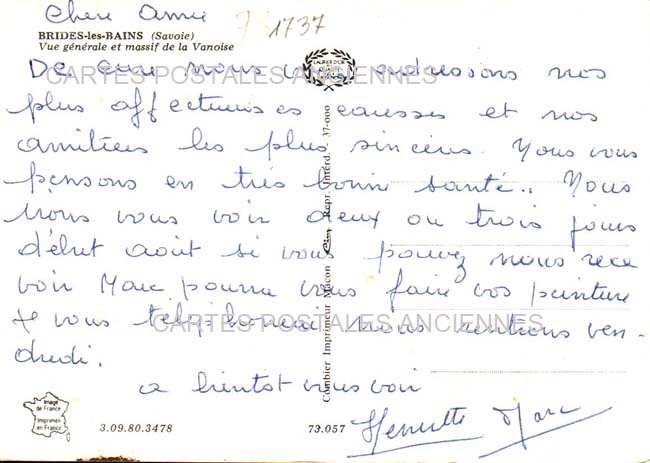 Chere Amie
1737
BRIDES-les-BAINS (Savoie)
Vue générale et massif de la Vanoise
De cure nous vous adressons nos
plus affectueuses caresses et nos
amitiées les plus sincères. Nous vous
pensons en très bonne santé.. Nous
irons vous voir deux ou trois jours
début août si vous pouvez nous rece
voir Marc pourra vous faire vos peinture
je vous telephonerai nous rentrons ven-
dredi.
a bientot vous voir
Henriette Marc
CARTES POSTALES ANCIENNES
CARTES POSTALES ANCIENNES
Combier Imprimeur Macon Repr. Interd. - 37-000
Image de France
Imprimé en France
3.09.80.3478
73.057